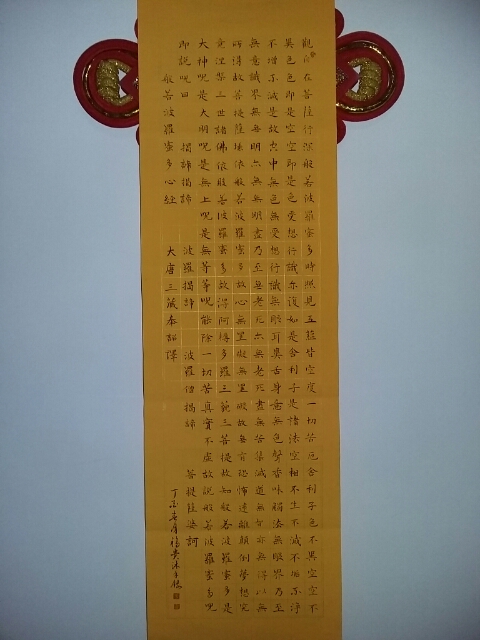 觀自在菩薩行深般若波羅蜜多時照見五蘊皆空度一切苦厄舍利子色不異空空不
異色色即是空空即是色受想行識亦復如是舍利子是諸法空相不生不滅不垢不淨
不增不減是故空中無色無受想行識無眼耳鼻舌身意無色聲香味觸法無眼界乃至
無意識界無無明亦無無明盡乃至無老死亦無老死盡無苦集滅道無智亦無得以無
所得故菩提薩埵依般若波羅蜜多故心無罣礙無罣礙故無有恐怖遠離顛倒夢想究
竟涅槃三世諸佛依般若波羅蜜多故得阿耨多羅三藐三菩提故知般若波羅蜜多是
大神呪是大明呪是無上呪是無等等呪能除一切苦真實不虛故說般若波羅蜜多呪
即説呪曰 揭諦揭諦 波羅揭諦 波羅僧揭諦 菩提薩婆訶
般若波羅蜜多心經 大唐三藏奉詔譯
丁酉